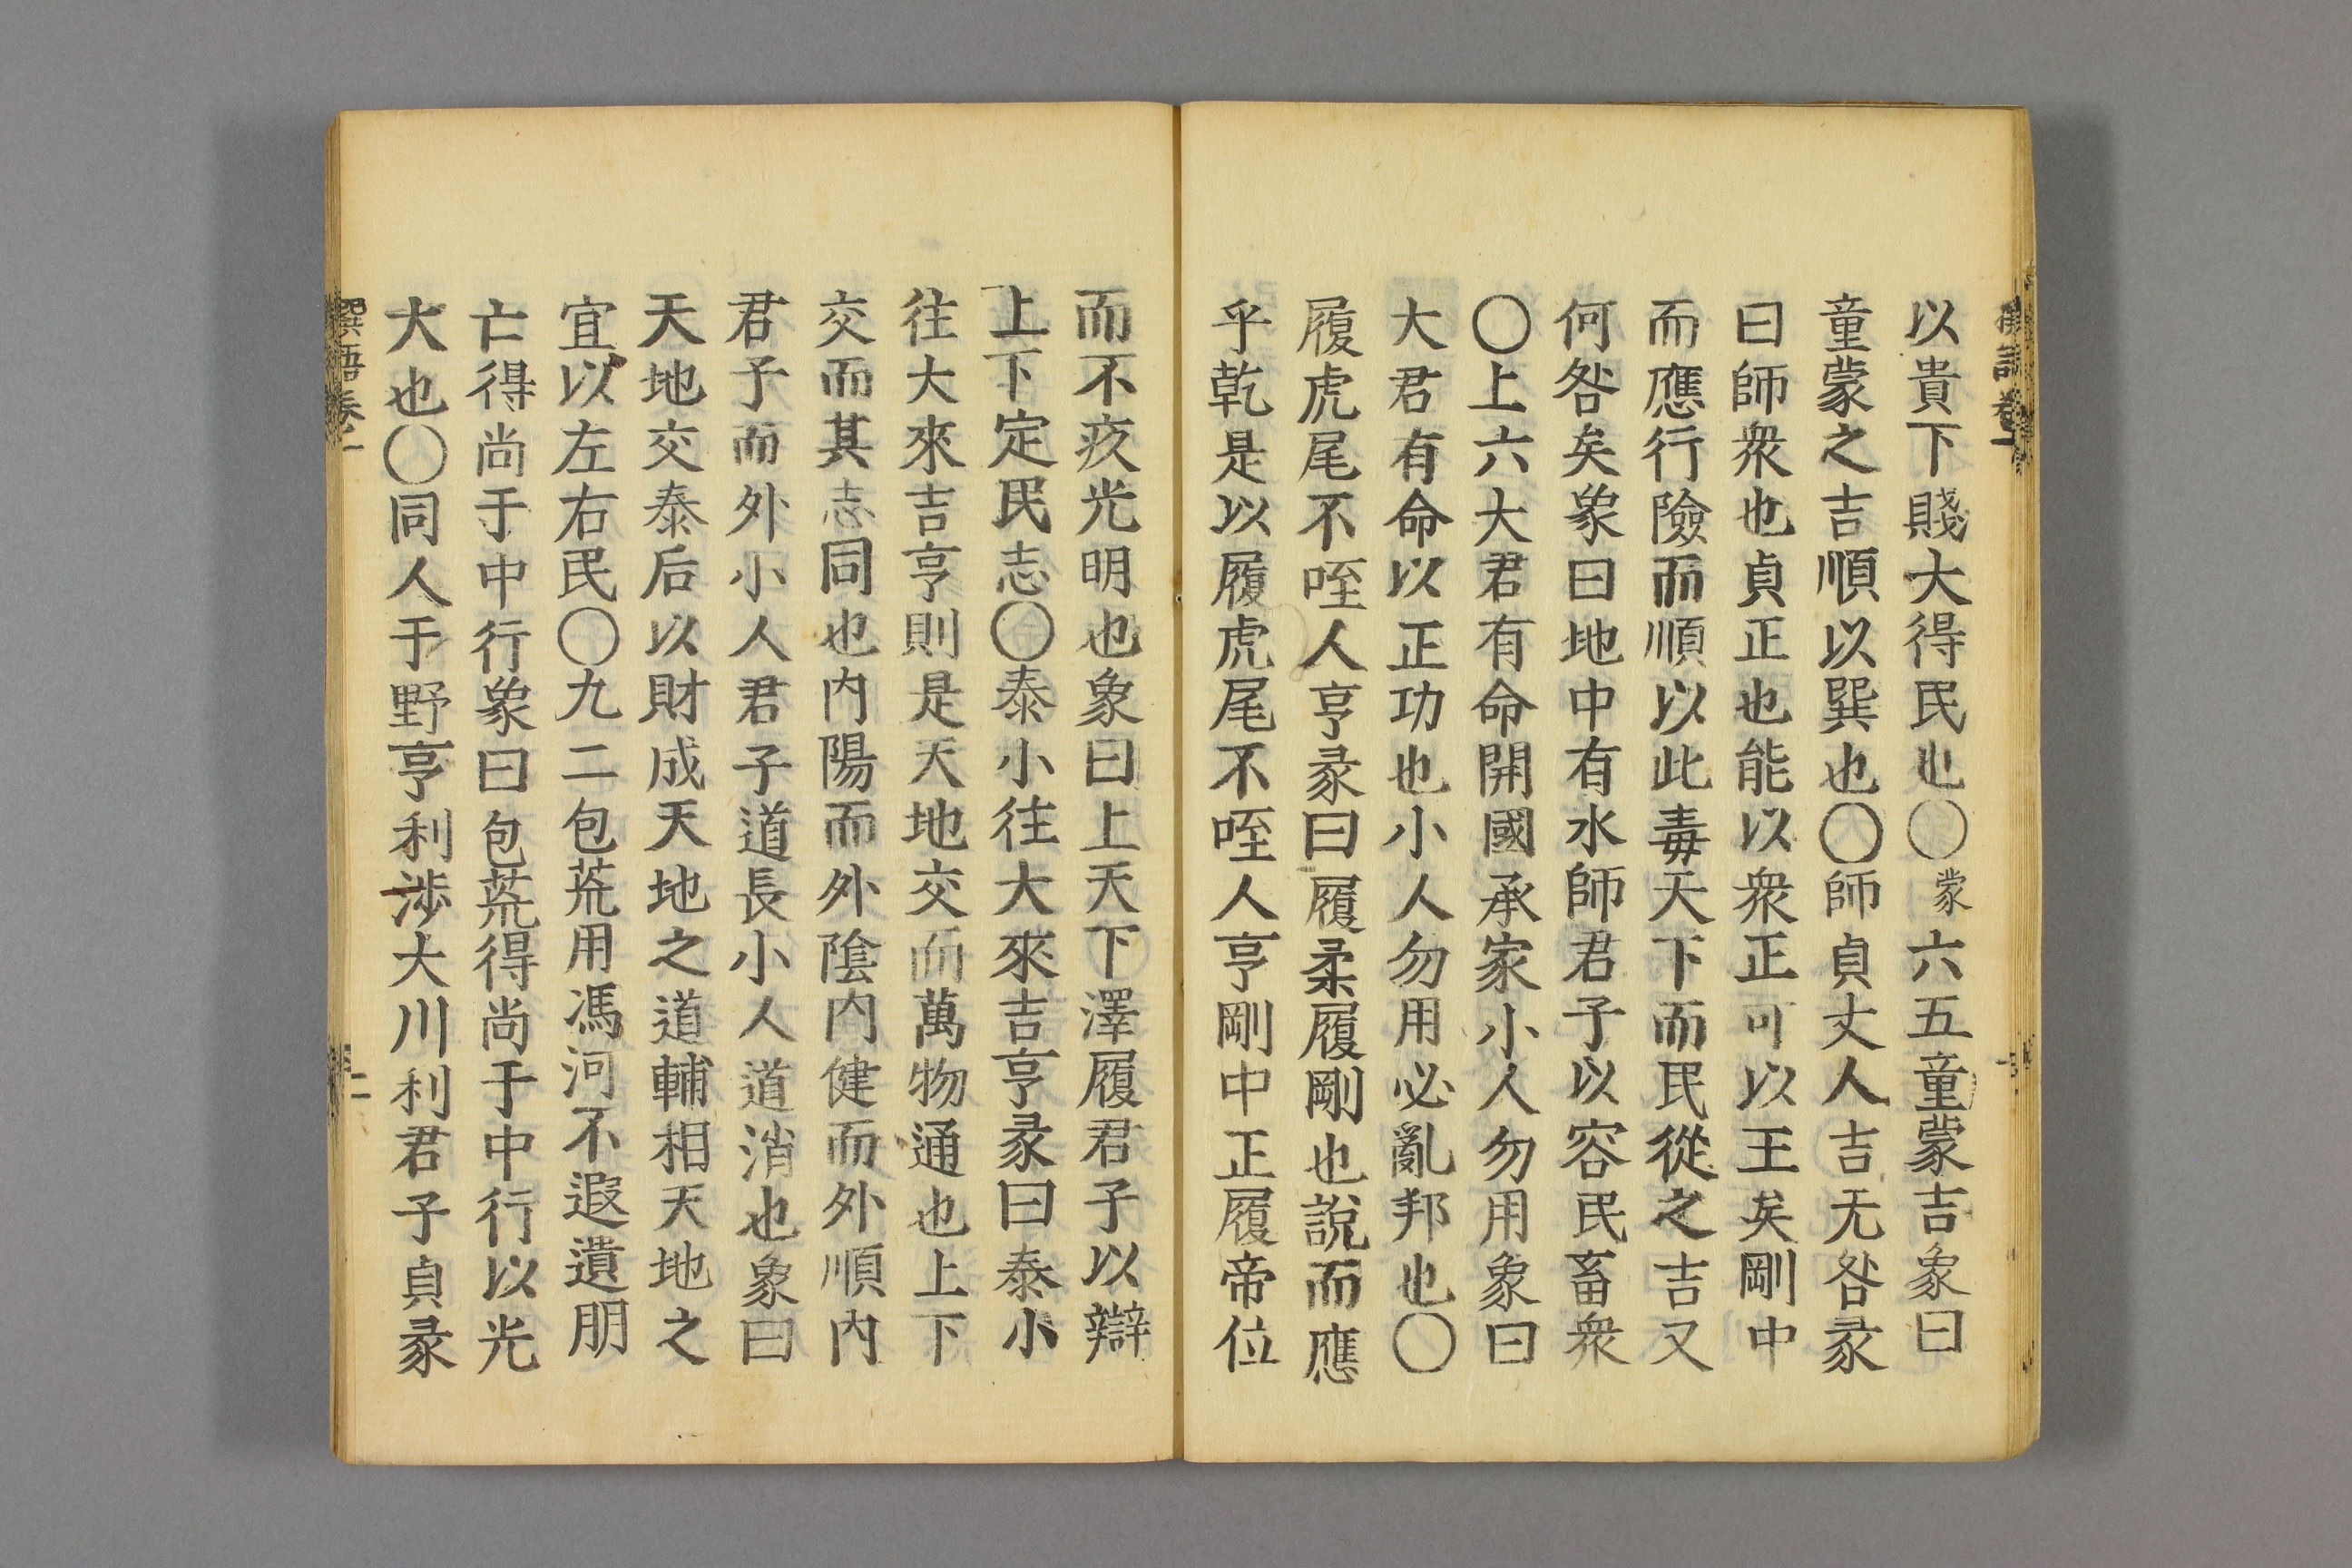 以貴下賤大得民也〇蒙六五童蒙吉象曰
童蒙之吉順以巽也〇師貞丈人吉无咎彖
曰師衆也貞正也能以衆正可以王矣剛中
而應行險而順以此毒天下而民從之吉又
何咎矣象曰地中有水師君子以容民畜衆
〇上六大君有命開國承家小人勿用象曰
大君有命以正功也小人勿用必亂邦也〇
履虎尾不咥人亨彖曰履柔履剛也說而應
乎乾是以履虎尾不咥人亨剛中正履帝位
而不疚光明也象曰上天下澤履君子以辯
上下定民志〇泰小往大來吉亨彖曰泰小
往大來吉亨則是天地交而萬物通也上下
交而其志同也内陽而外陰内健而外順内
君子而外小人君子道長小人道消也象曰
天地交泰后以財成天地之道輔相天地之
宜以左右民〇九二包荒用馮河不遐遺朋
亡得尚于中行象曰包荒得尚于中行以光
大也〇同人于野亨利涉大川利君子貞彖
二